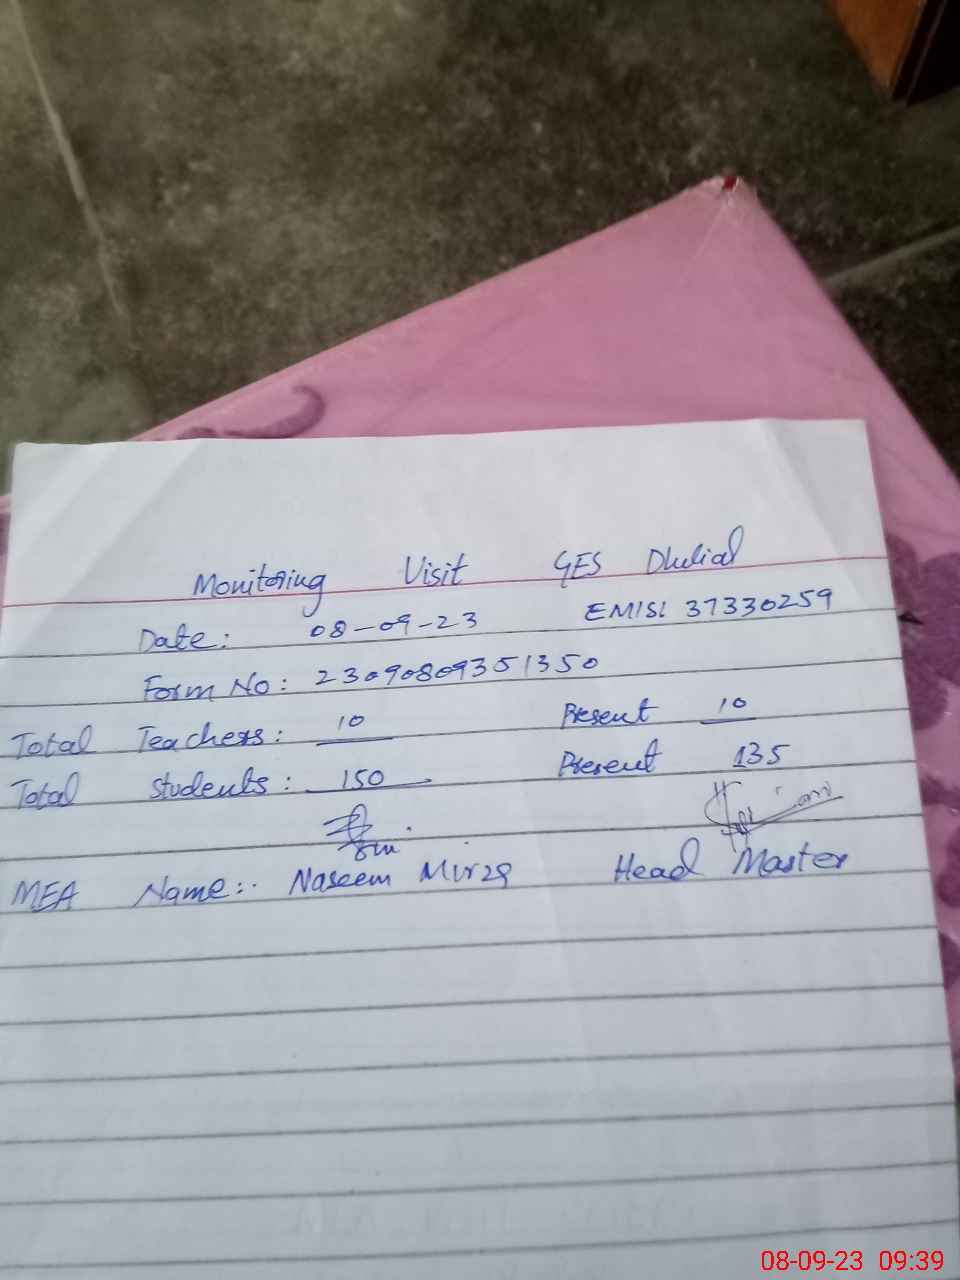 Monitoring Visit GES Dhulial
Date: 08-09-23 EMISI 37330259
Form No: 23090809351350
Total Teachers: 10 Present 10
Total Students: 150 Present 135
MEA Name:. Naseem Mirza Head Master
08-09-23 09:39